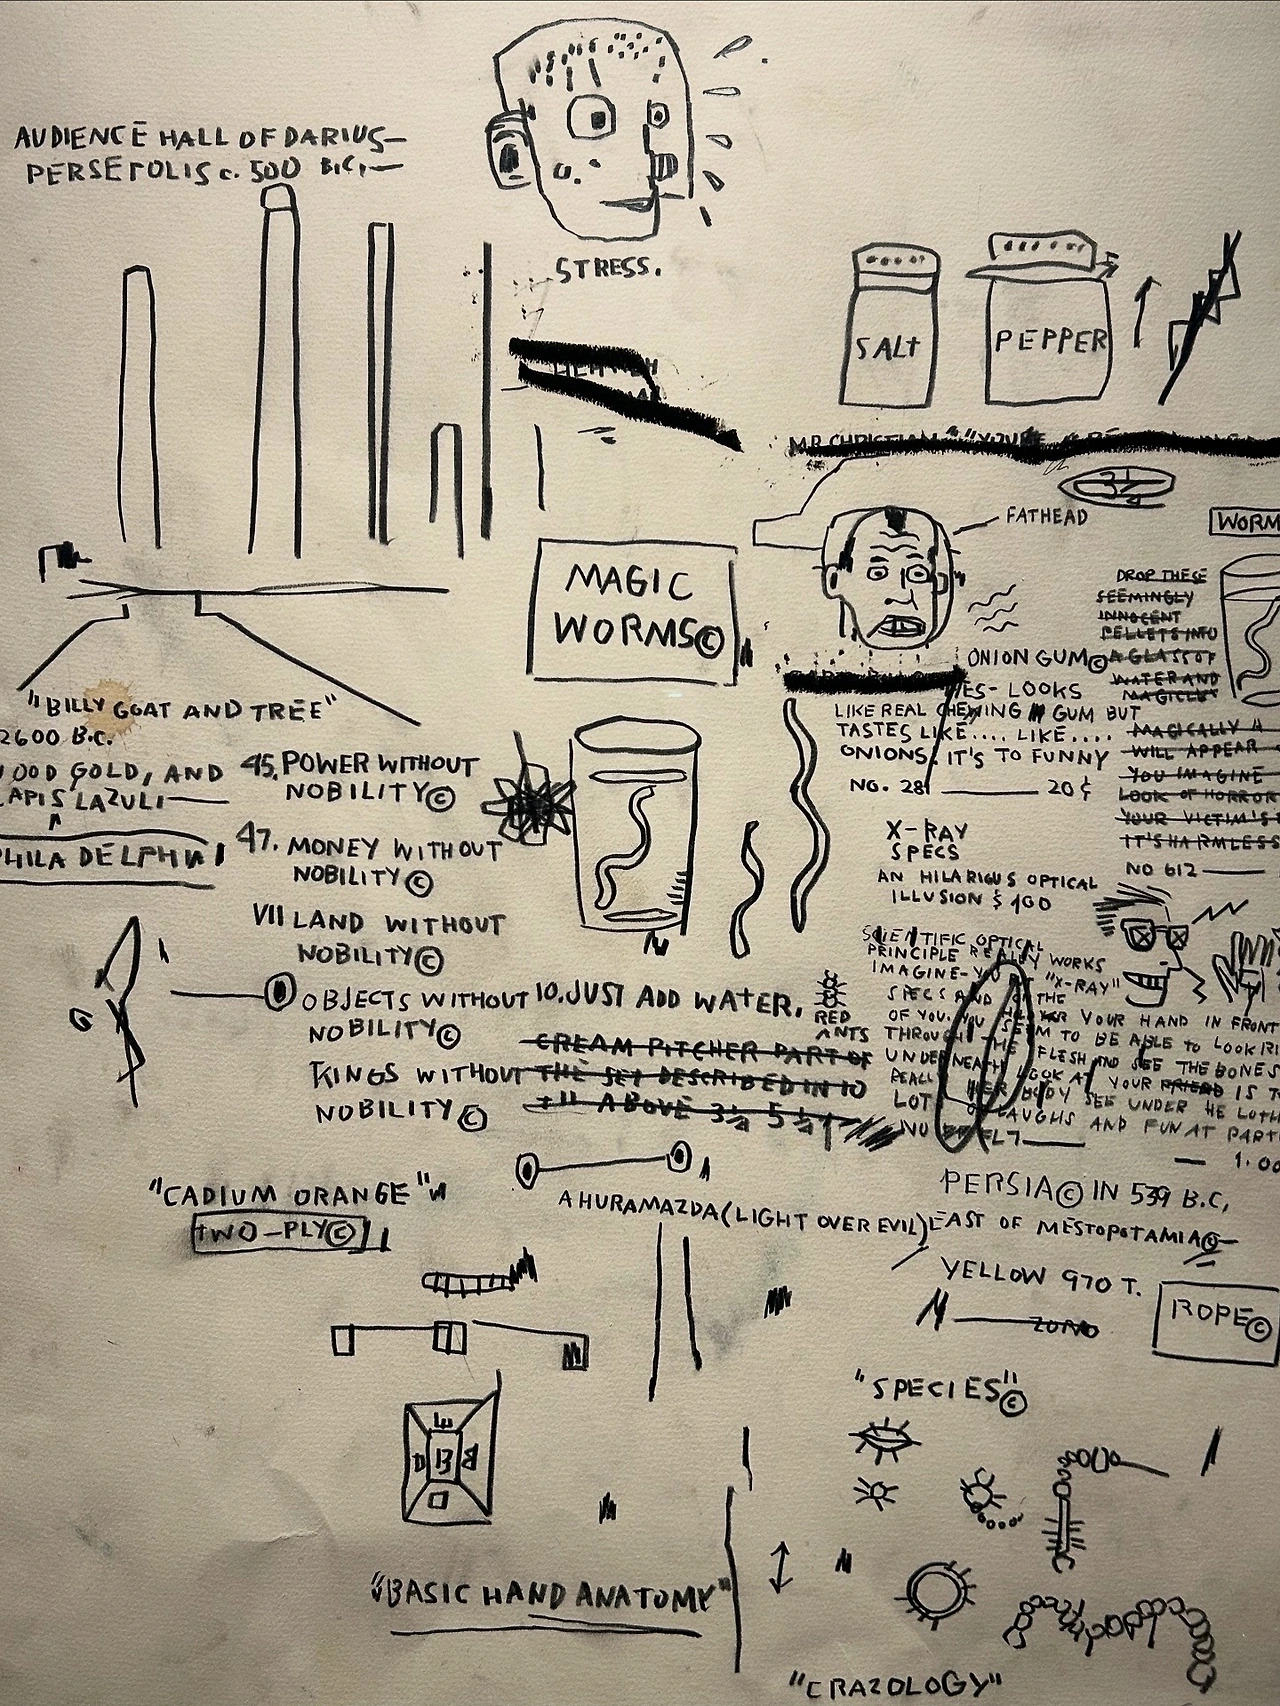 AUDIENCE HALL OF DARIUS—
PERSEPOLIS c. 500 B.C.—
STRESS.
SALT
PEPPER
MR. CHRISTIAN
FATHEAD
WORM
MAGIC
WORMS©
DROP THESE
SEEMINGLY
INNOCENT
PELLETS INTO
A GLASS OF
WATER AND
MAGICLLY
MAGICALLY
WILL APPEAR
YOU IMAGINE
LOOK OF HORROR
YOUR VICTIM'S
IT'S HARMLESS
NO 612—
ONION GUM©
YES- LOOKS
LIKE REAL CHEWING GUM BUT
TASTES LIKE.... LIKE....
ONIONS. IT'S TO FUNNY
NO. 28 — 20¢
"BILLY GOAT AND TREE"
2600 B.C.
WOOD GOLD, AND
LAPIS LAZULI—
PHILADELPHIA
45. POWER WITHOUT
NOBILITY©
47. MONEY WITHOUT
NOBILITY©
VII LAND WITHOUT
NOBILITY©
OBJECTS WITHOUT
NOBILITY©
KINGS WITHOUT
NOBILITY©
10. JUST ADD WATER.
CREAM PITCHER PART OF
THE SET DESCRIBED IN 10
ABOVE 3½ 5
RED
ANTS
X-RAY
SPECS
AN HILARIOUS OPTICAL
ILLUSION $1.00
SCIENTIFIC OPTICAL
PRINCIPLE REALLY WORKS
IMAGINE- "X-RAY"
SPECS AND THE
OF YOU. YOU YOUR HAND IN FRONT
THROUGH THE SEEM TO BE ABLE TO LOOK
UNDERNEATH FLESH AND SEE THE BONES
REALLY LOOK AT YOUR FRIEND IS
LOT HER BODY SEE UNDER HE
LAUGHS AND FUN AT
NO
1.00
"CADIUM ORANGE"
TWO-PLY©
AHURAMAZDA (LIGHT OVER EVIL)
PERSIA© IN 539 B.C,
EAST OF MESTOPOTAMIA©—
YELLOW 970 T.
ROPE©
"SPECIES"©
"BASIC HAND ANATOMY"
"CRAZOLOGY"